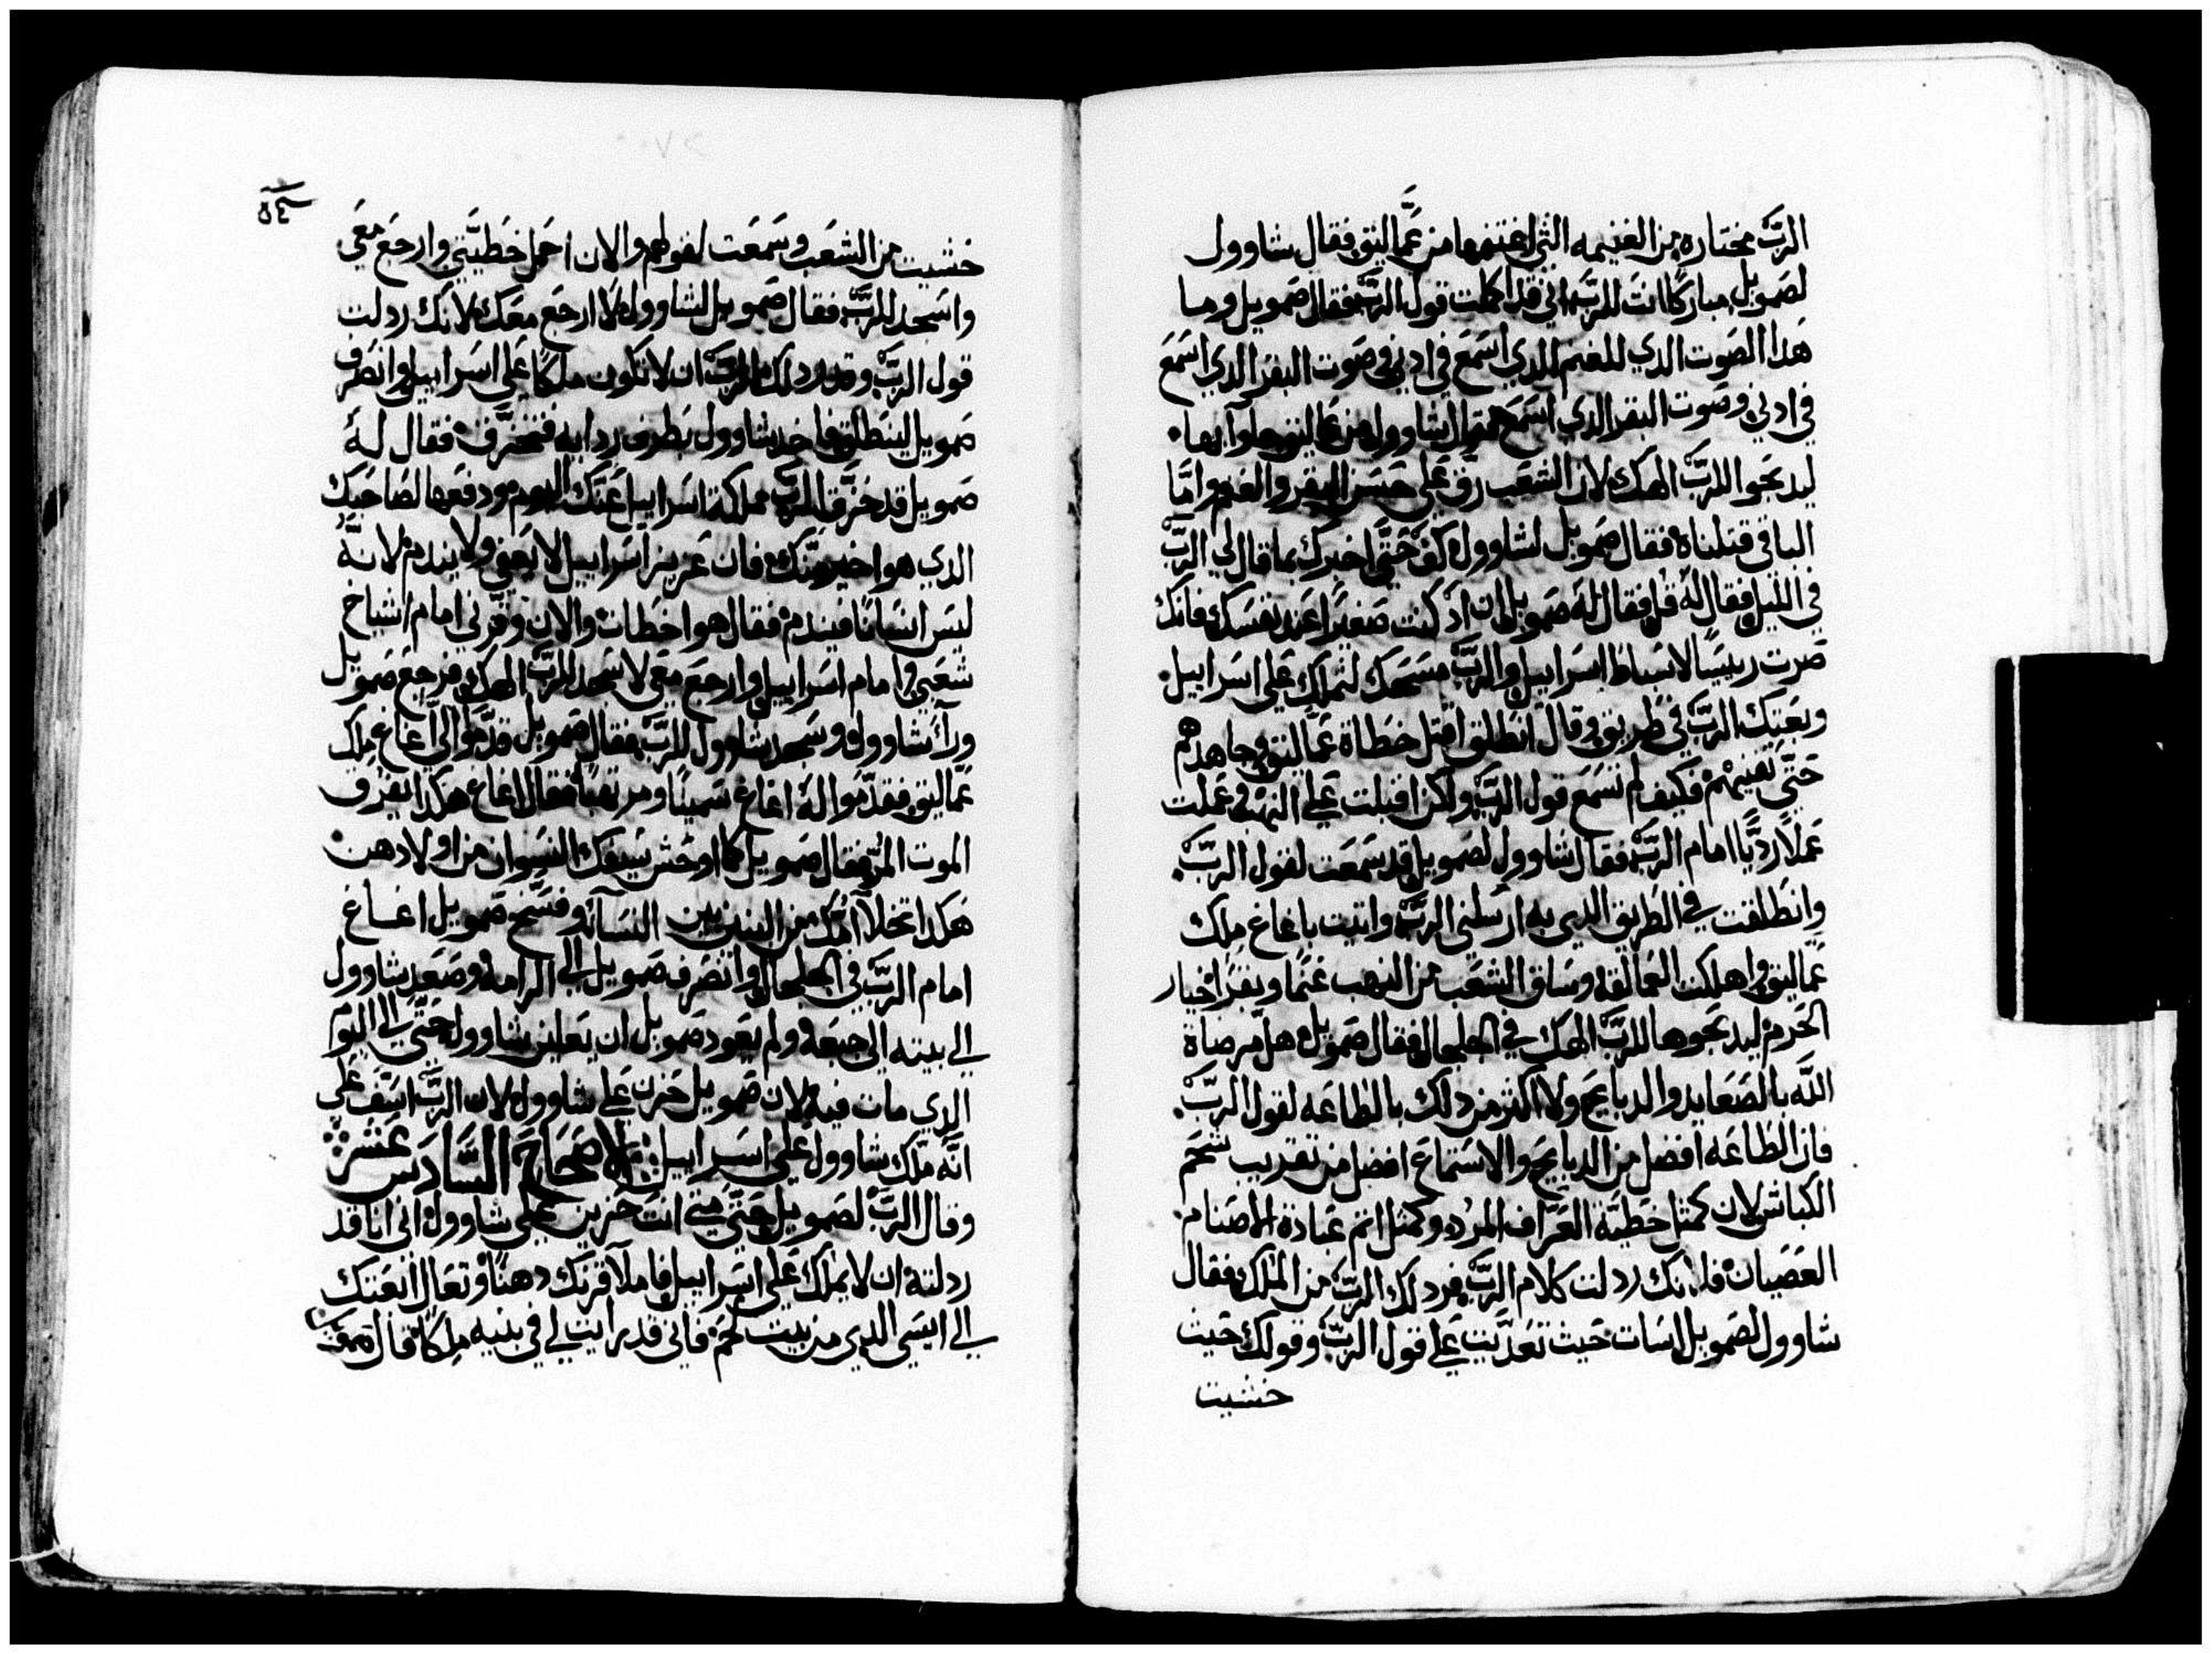 الربّ مختاره من الغنيمه التي اغتنمها من عمّاليق فقال شاوول
لصمويل مباركًا انت للربّ اني قد اكملت قول الربّ فقال صمويل وما
هدا الصوت الدي للغنم الدي اسمع في ادني وصوت البقر الدي اسمع
في ادني وصوت البقر الدي اسمع فقال شاوول من عماليق جاوا بها.
ليدبحوا للربّ الهك لان الشعب رق على حسن البقر والغنم وامّا
الباقي قتلناه فقال صمويل لشاوول كف حتّى اخبرك بما قال لي الربّ
في الليل فقال له قل فقال له صمويل ان اد كنت صغيرًا عند نفسك فانك
صرت رييسًا لاسباط اسراييل والربّ مسحك لتملك على اسراييل.
وبعتك الربّ في طريق وقال انطلق اقتل خطاة عمّاليق وجاهدهم
حتّى تفنيهم فكيف لم تسمع قول الربّ ولكن اقبلت على النهب وعملت
عملًا رديًّا امام الربّ فقال شاوول لصمويل قد سمعت لقول الربّ.
وانطلقت في الطريق الدي به ارسلني الربّ واتيت باغاغ ملك
عمّاليق واهلكت العمالقه وساق الشعب من النهب غنمًا وبقرًا خيار
الحرم ليدبحوها للربّ الهك في الجلجال فقال صمويل هل مرضاة
اللّه بالصعايد والدبايح ولا اكتر من دلك بالطاعه لقول الربّ.
فان الطاعه افضل من الدبايح والاستماع افضل من تقريب شحم
الكباش لان كمتل خطيّة العرّاف المرده وكمتل اتم عبادة الاصنام
العصيان فلانك ردلت كلام الربّ فردلك الربّ من الملك فقال
شاوول لصمويل اسات حيث تعدّيت على قول الربّ وقولك حيث
خشيت
٥٤
خشيت من الشعب وسمعت لقولهم والان احمل خطيّتي وارجع معي
واسجد للربّ فقال صمويل لشاوول لا ارجع معك لانك ردلت
قول الربّ وقد ردلك الربّ ان لا تكون ملكًا على اسراييل وانصرف
صمويل لينطلق فاخد شاوول بطرف ردايه فتخرّق فقال له
صمويل قد خرّق الربّ مملكة اسراييل عنك اليوم ودفعها لصاحبك
الدي هو اخير منّك فان عزيز اسراييل لا يعفي ولا يندم لانّه
ليس انسانًا فيندم فقال هو اخطات والان وقّرني امام اشياخ
شعبي وامام اسراييل وارجع معي لاسجد للربّ الهك فرجع صمويل
ورآ شاوول وسجد شاوول للربّ فقال صمويل قدّموا اليّ اغاغ ملك
عمّاليق فقدّموا له اغاغ سمينًا ومرتعبًا فقال اغاغ هكدا يفرّق
الموت المرّ فقال صمويل كما اوحش سيفك النسوان من اولادهن
هكدا تخلا امّك من البنين بين النسآء وفسّخ صمويل اغاغ
امام الربّ في الجلجال وانصرف صمويل الى الرامه وصعد شاوول
الى بيته الى جبعه ولم يعود صمويل ان يعاين شاوول حتّى الى اليوم
الدي مات فيه لان صمويل حزن على شاوول لان الربّ اسف على
انّه ملّك شاوول على اسراييل الاصحاح السّادس عشر
وقال الربّ لصمويل حتّى متى انت حزين على شاوول اني انا قد
ردلته ان لا يملك على اسراييل فاملآ قرنك دهنًا وتعال ابعتك
الى ايسي الدي من بيت لحم فاني قد رايت لي في بنيه ملكًا قال